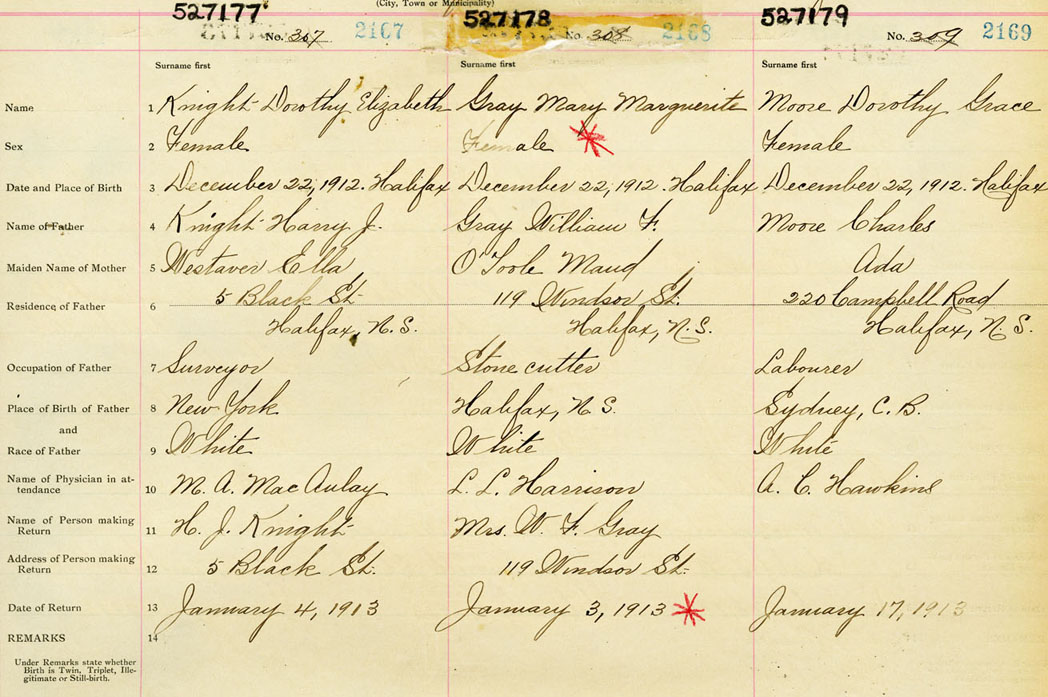 (City, Town or Municipality)
527177 527178 527179
No. 307 2167 No. 308 2168 No. 309 2169
Surname first Surname first Surname first
Name 1 Knight Dorothy Elizabeth Gray Mary Marguerite Moore Dorothy Grace
Sex 2 Female Female Female
Date and Place of Birth 3 December 22, 1912. Halifax December 22, 1912. Halifax December 22, 1912. Halifax
Name of Father 4 Knight Harry J. Gray William F. Moore Charles
Maiden Name of Mother 5 Westaver Ella O'Toole Maud Ada
Residence of Father 6 5 Black St. 119 Windsor St. 220 Campbell Road
Halifax, N.S. Halifax, N.S. Halifax, N.S.
Occupation of Father 7 Surveyor Stone cutter Labourer
Place of Birth of Father 8 New York Halifax, N.S. Sydney, C.B.
and
Race of Father 9 White White White
Name of Physician in at-
tendance 10 M. A. MacAulay L. L. Harrison A. C. Hawkins
Name of Person making
Return 11 H. J. Knight Mrs. W. F. Gray
Address of Person making
Return 12 5 Black St. 119 Windsor St.
Date of Return 13 January 4, 1913 January 3, 1913 January 17, 1913
REMARKS 14
Under Remarks state whether
Birth is Twin, Triplet, Ille-
gitimate or Still-birth.